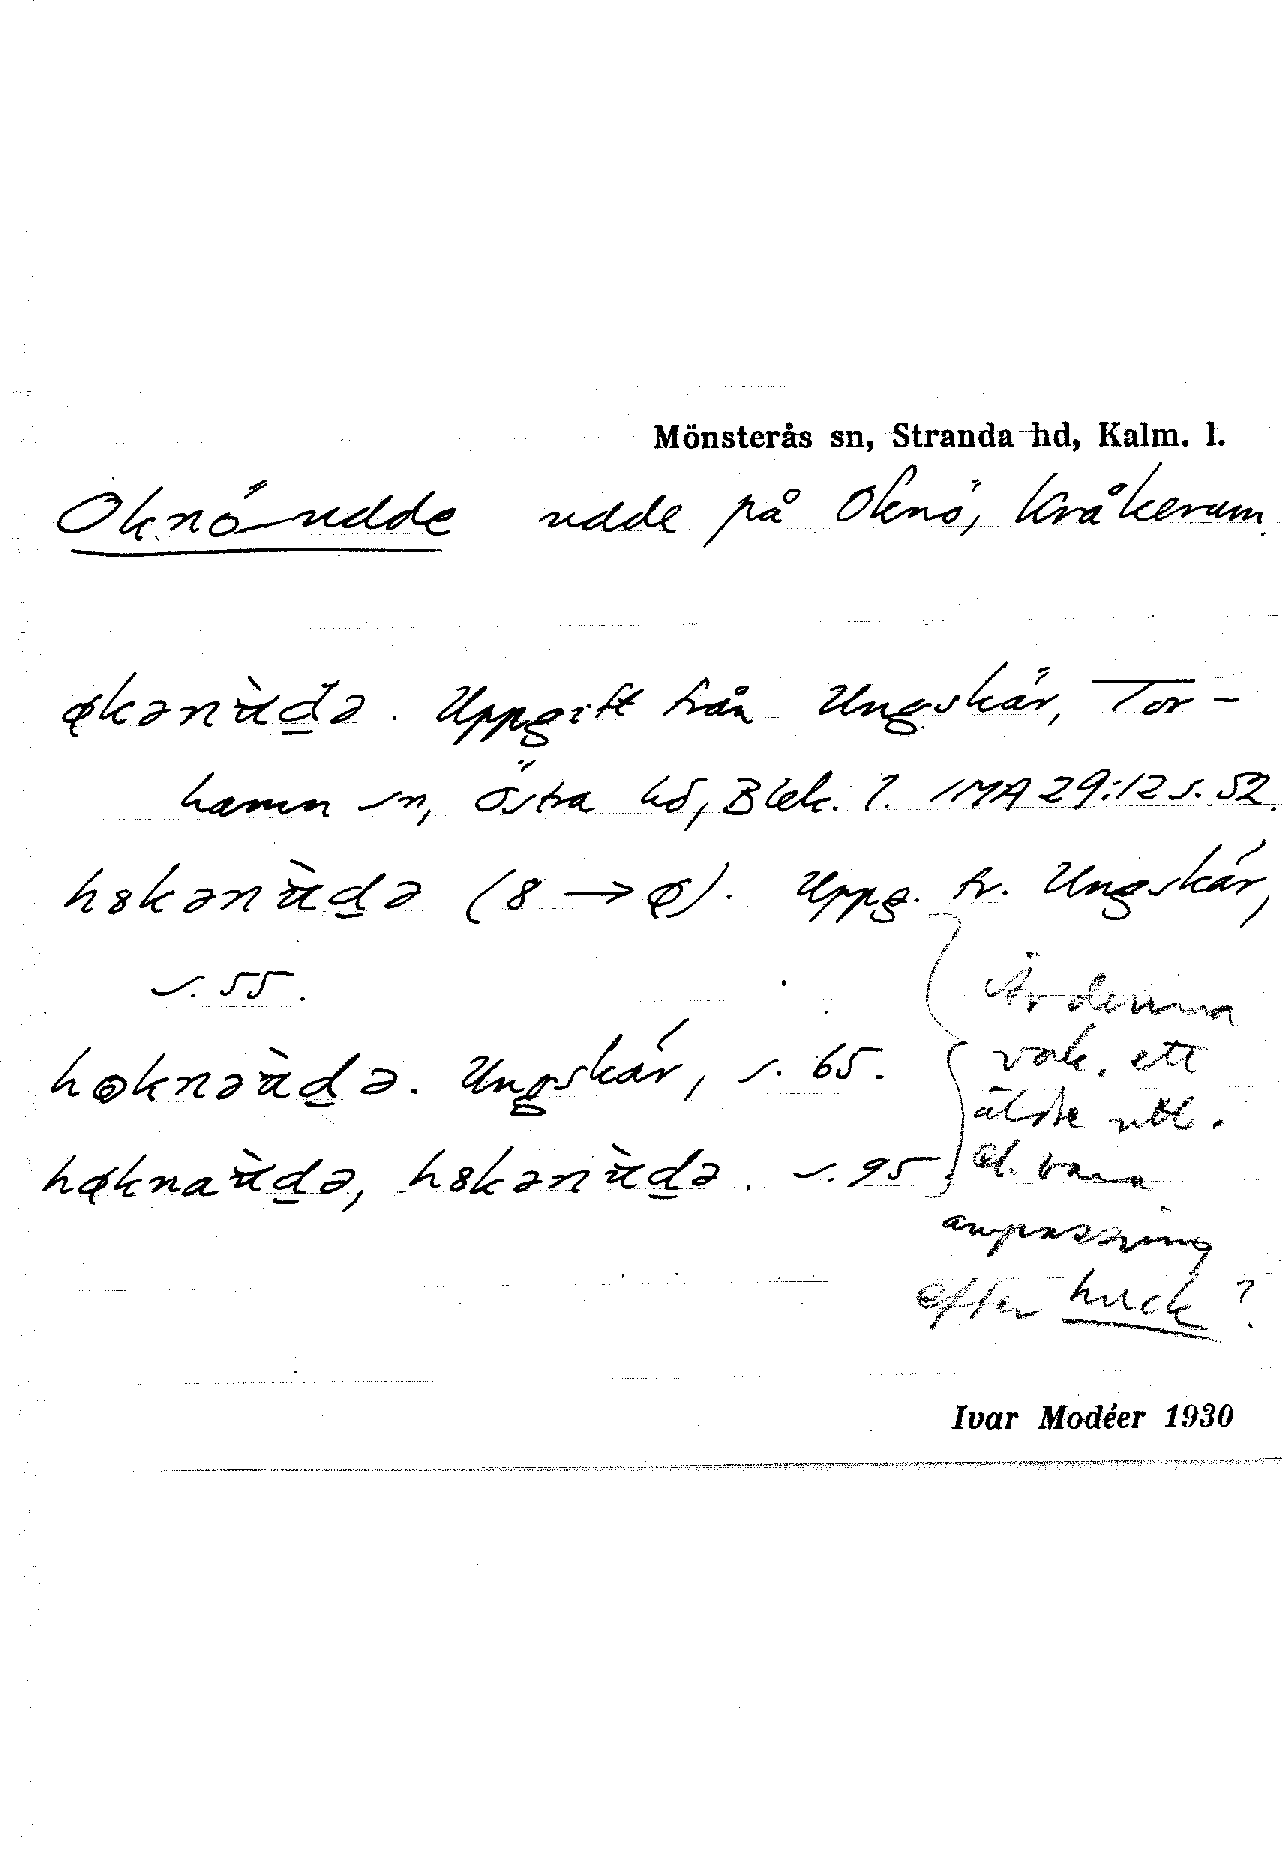 Mönsterås sn, Stranda hd, Kalm. l.
Oknö udde udde på Oknö, Kråkerum.
økənʉ̀d̲ə. Uppgift från Ungskär, Tor-
hamn sn, Östra hd, Blek. l. IMA 29:12 s. 52.
h8kənʉ̀d̲ə (8 → ø). Uppg. fr. Ungskär,
s. 55.
høknəʉ̀d̲ə. Ungskär, s. 65.
høknaʉ̀d̲ə, h8kənʉ̀d̲ə. s. 95
Är denna
vok. ett
äldre utt.
el. bara
anpassning
efter huck?
Ivar Modéer 1930